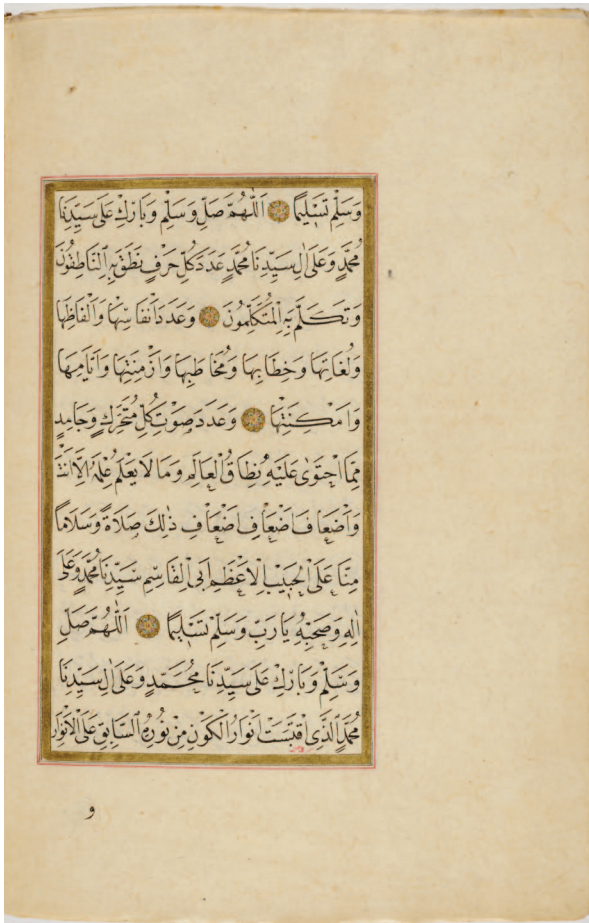 وَسَلِّمْ تَسْلِيمًا اَللّٰهُمَّ صَلِّ وَسَلِّمْ وَبَارِكْ عَلٰى سَيِّدِنَا
مُحَمَّدٍ وَعَلٰى اٰلِ سَيِّدِنَا مُحَمَّدٍ عَدَدَ كُلِّ حَرْفٍ نَطَقَ بِهِ النَّاطِقُونَ
وَتَكَلَّمَ بِهِ الْمُتَكَلِّمُونَ وَعَدَدَ اَنْفَاسِهَا وَاَلْفَاظِهَا
وَلُغَاتِهَا وَخِطَابِهَا وَمُخَاطَبِهَا وَاَزْمِنَتِهَا وَاَيَّامِهَا
وَاَمْكِنَتِهَا وَعَدَدَ صَوْتِ كُلِّ مُتَحَرِّكٍ وَجَامِدٍ
مِمَّا احْتَوٰى عَلَيْهِ نِطَاقُ الْعَالَمِ وَمَا لَا يَعْلَمُ عِلْمَهُ اِلَّا اَنْتَ
وَاَضْعَافَ اَضْعَافِ اَضْعَافِ ذٰلِكَ صَلَاةً وَسَلَامًا
مِنَّا عَلَى الْحَبِيبِ الْاَعْظَمِ اَبِى الْقَاسِمِ سَيِّدِنَا مُحَمَّدٍ وَعَلٰى
اٰلِهِ وَصَحْبِهِ يَا رَبِّ وَسَلِّمْ تَسْلِيمًا اَللّٰهُمَّ صَلِّ
وَسَلِّمْ وَبَارِكْ عَلٰى سَيِّدِنَا مُحَمَّدٍ وَعَلٰى اٰلِ سَيِّدِنَا
مُحَمَّدٍ الَّذِى اقْتَبَسَتْ اَنْوَارُ الْكَوْنِ مِنْ نُورِهِ السَّابِقِ عَلَى الْاَنْوَارِ
و